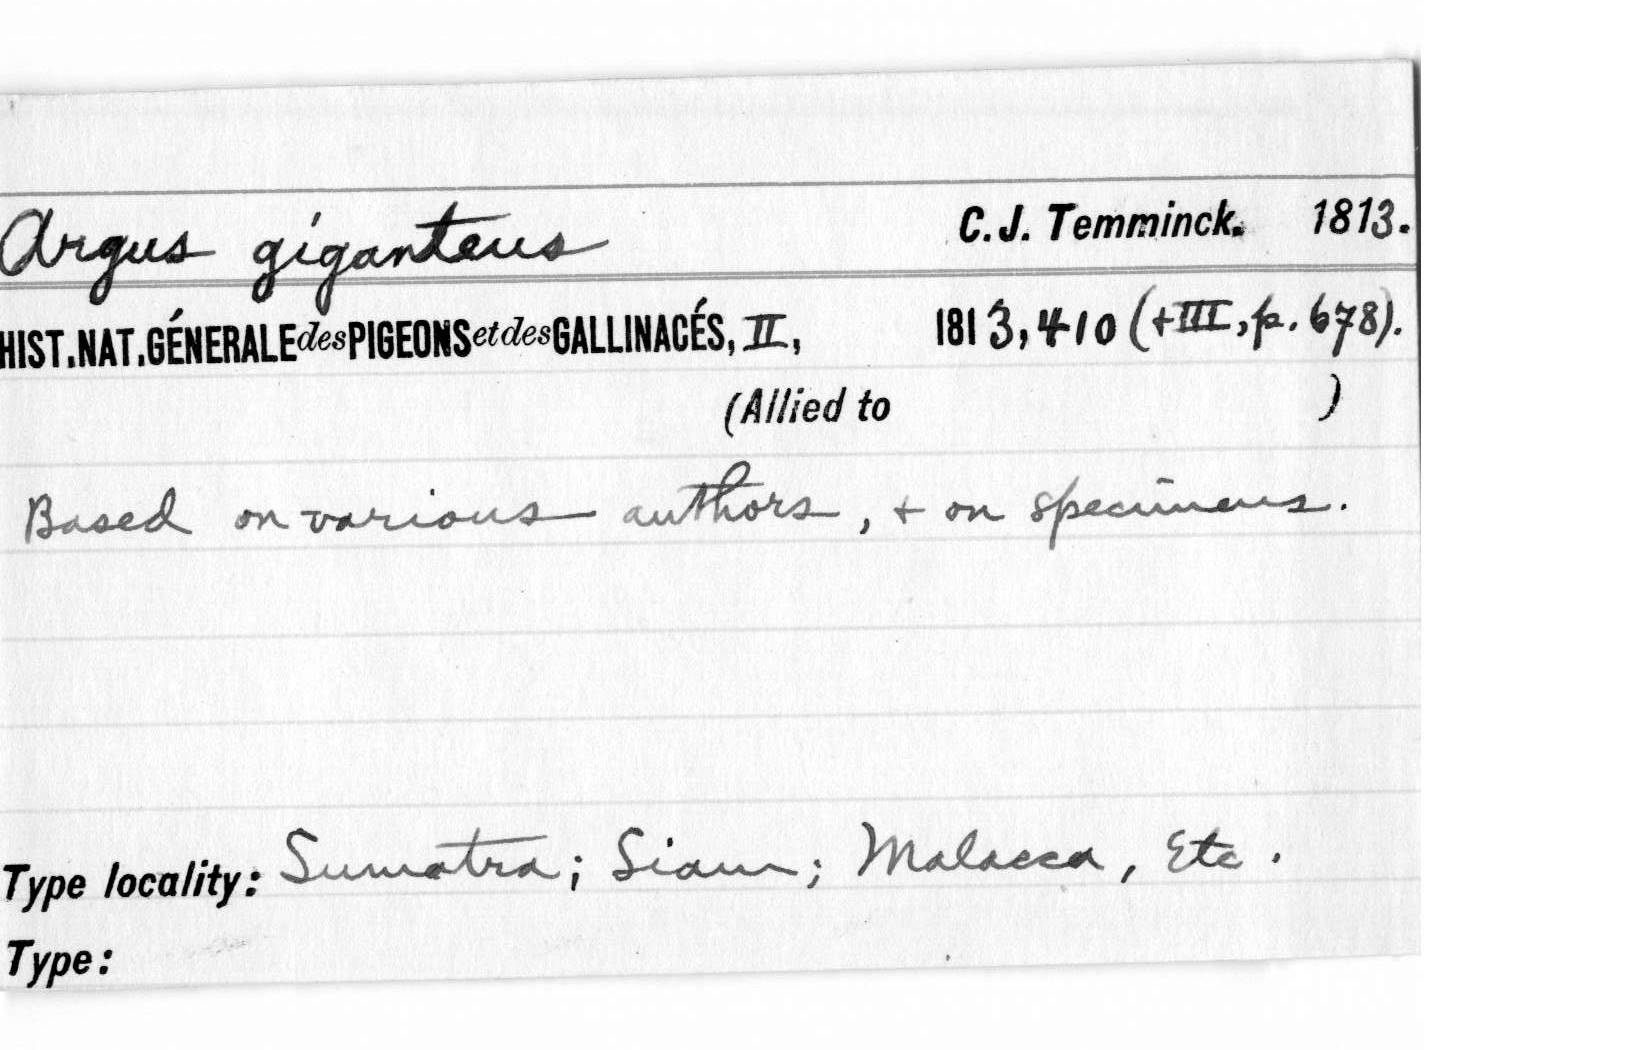 Argus giganteus C.J. Temminck. 1813.
HIST.NAT.GÉNERALE des PIGEONS et des GALLINACÉS, II, 1813, 410 (+III, p. 678).
(Allied to )
Based on various authors, + on specimens.
Type locality: Sumatra; Siam; Malacca, Etc.
Type: